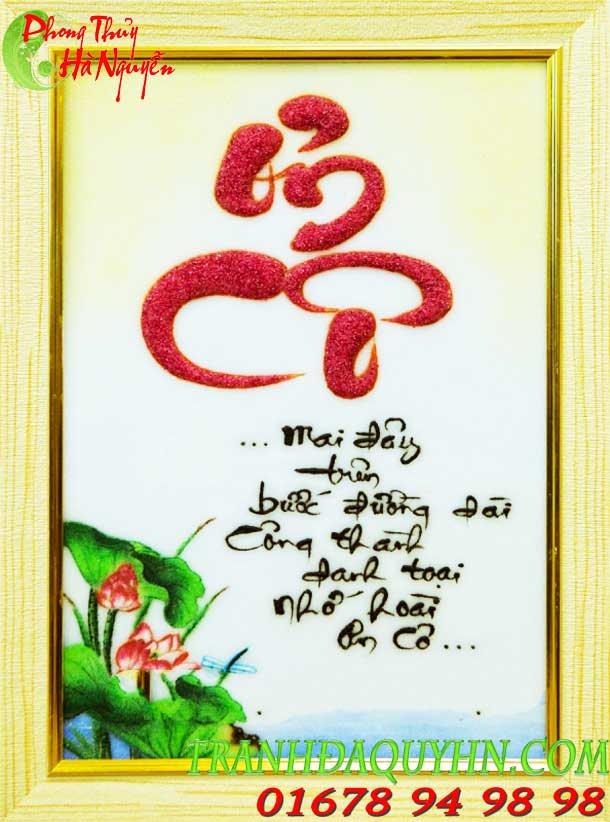 Phong Thủy
Hà Nguyễn
Ơn
Cô
... Mai đây
trên
bước đường dài
Công thành
danh toại
nhớ hoài
Ơn Cô ...
TRANHDAQUYHN.COM
01678 94 98 98